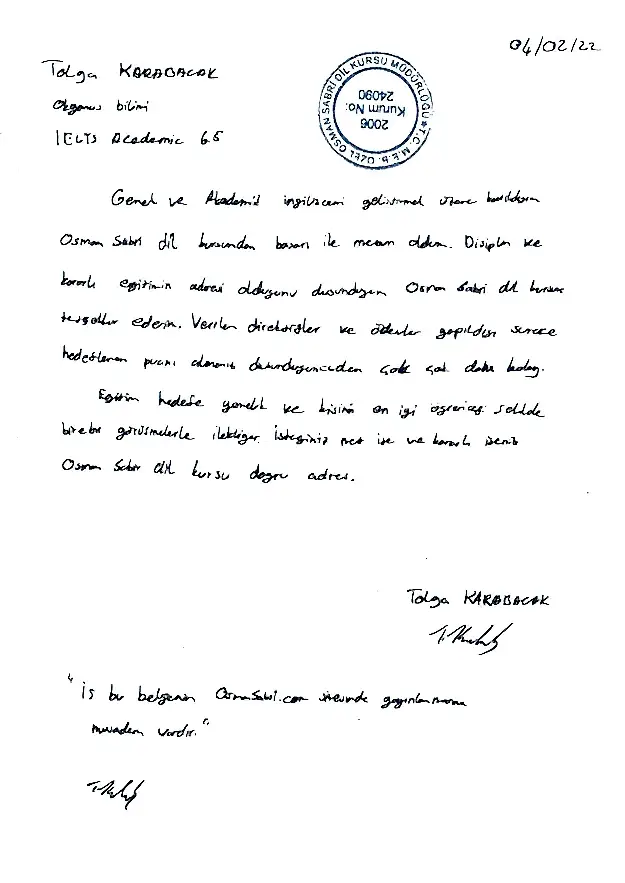 04/02/22
Tolga KARABACAK
bilimi
IELTS Academic 6.5
T.C. M.E.B. ÖZEL OSMAN SABRİ DİL KURSU MÜDÜRLÜĞÜ
2006
Kurum No:
24090
Genel ve Akademik ingilizcemi geliştirmek üzere
Osman Sabri dil kursundan başarı ile mezun oldum. Disiplin ve
kararlı eğitimin adresi olduğunu düşündüğüm Osman Sabri dil kursuna
teşekkür ederim. Verilen direktifler ve ödevler yapıldığı sürece
hedeflenen puanı almanız düşündüğünüzden çok çok daha kolay.
Eğitim hedefe yönelik ve kişinin en iyi öğreneceği şekilde
birebir görüşmelerle ilerliyor. İsteğiniz net ise ve kararlı iseniz
Osman Sabri dil kursu doğru adres.
Tolga KARABACAK
"İş bu belgenin OsmanSabri.com sitesinde yayınlanmasına
müsadem vardır."